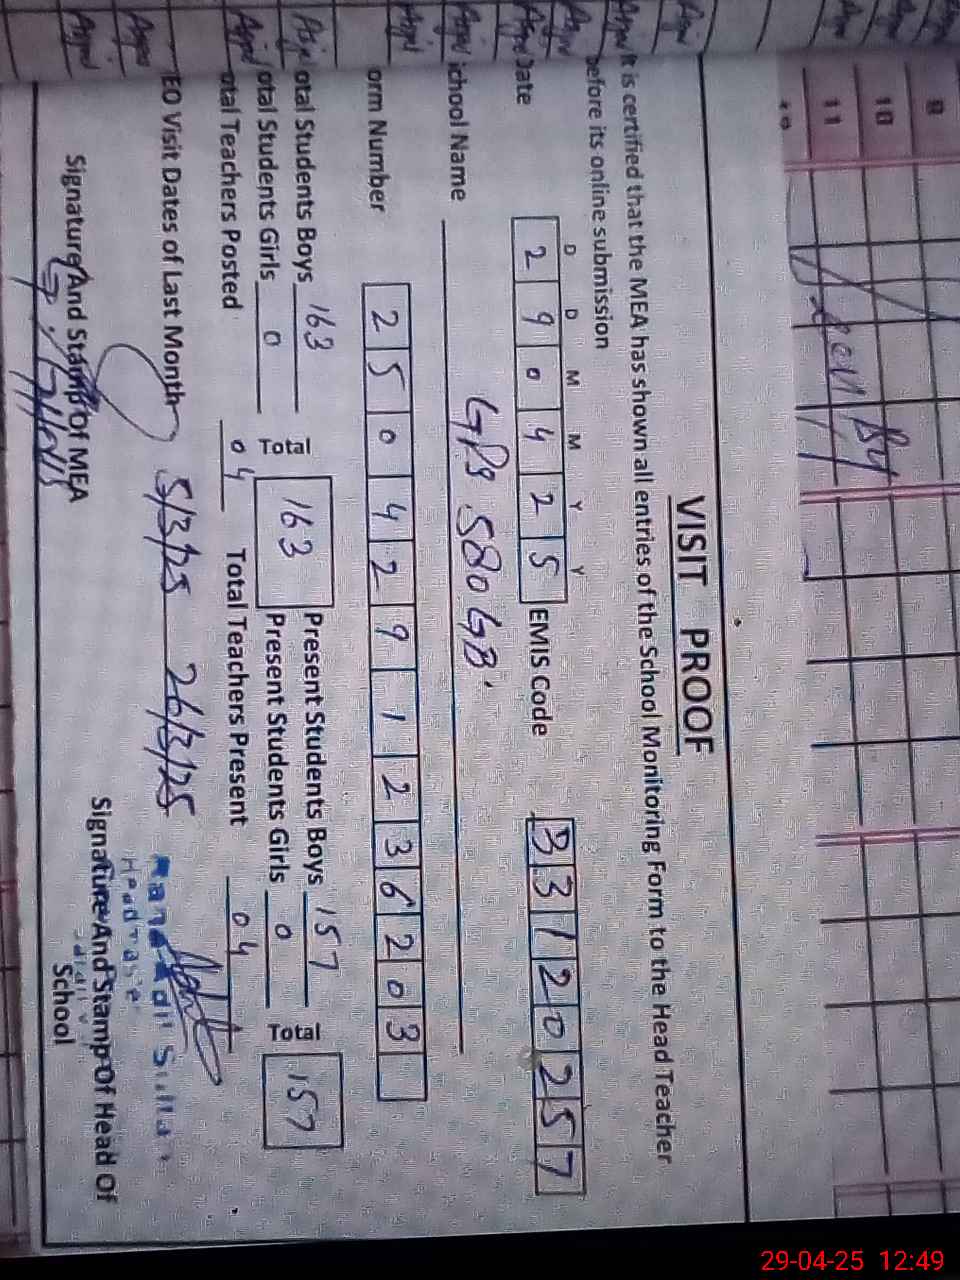 9
10
11
VISIT PROOF
It is certified that the MEA has shown all entries of the School Monitoring Form to the Head Teacher
before its online submission
D D M M Y Y
Date 2 9 0 4 2 5 EMIS Code 3 3 1 2 0 2 5 7
School Name GPS 580 GB
orm Number 2 5 0 4 2 9 1 2 3 6 2 0 3
otal Students Boys 163 Total 163 Present Students Boys 157 Total 157
otal Students Girls 0 Present Students Girls 0
otal Teachers Posted 04 Total Teachers Present 04
EO Visit Dates of Last Month 5/3/25 26/3/25
Signature And Stamp Of MEA
Signature And Stamp Of Head Of
School
29-04-25 12:49